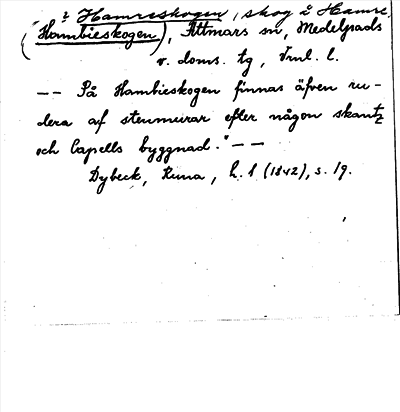 ? Hamreskogen, skog i Hamre.
(Hambieskogen), Attmars sn, Medelpads
v. doms. tg, Vrnl. l.
-- På Hambieskogen finnas äfven ru-
dera af stenmurar efter någon skantz
och Capells byggnad." --
Dybeck, Runa, h. 1 (1842), s. 19.